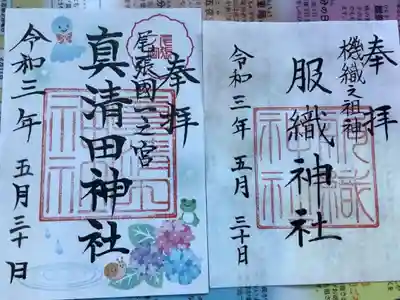 奉拝
尾張國一之宮
真清田神社
令和三年五月三十日
奉拝
機織之祖神
服織神社
令和三年五月三十日